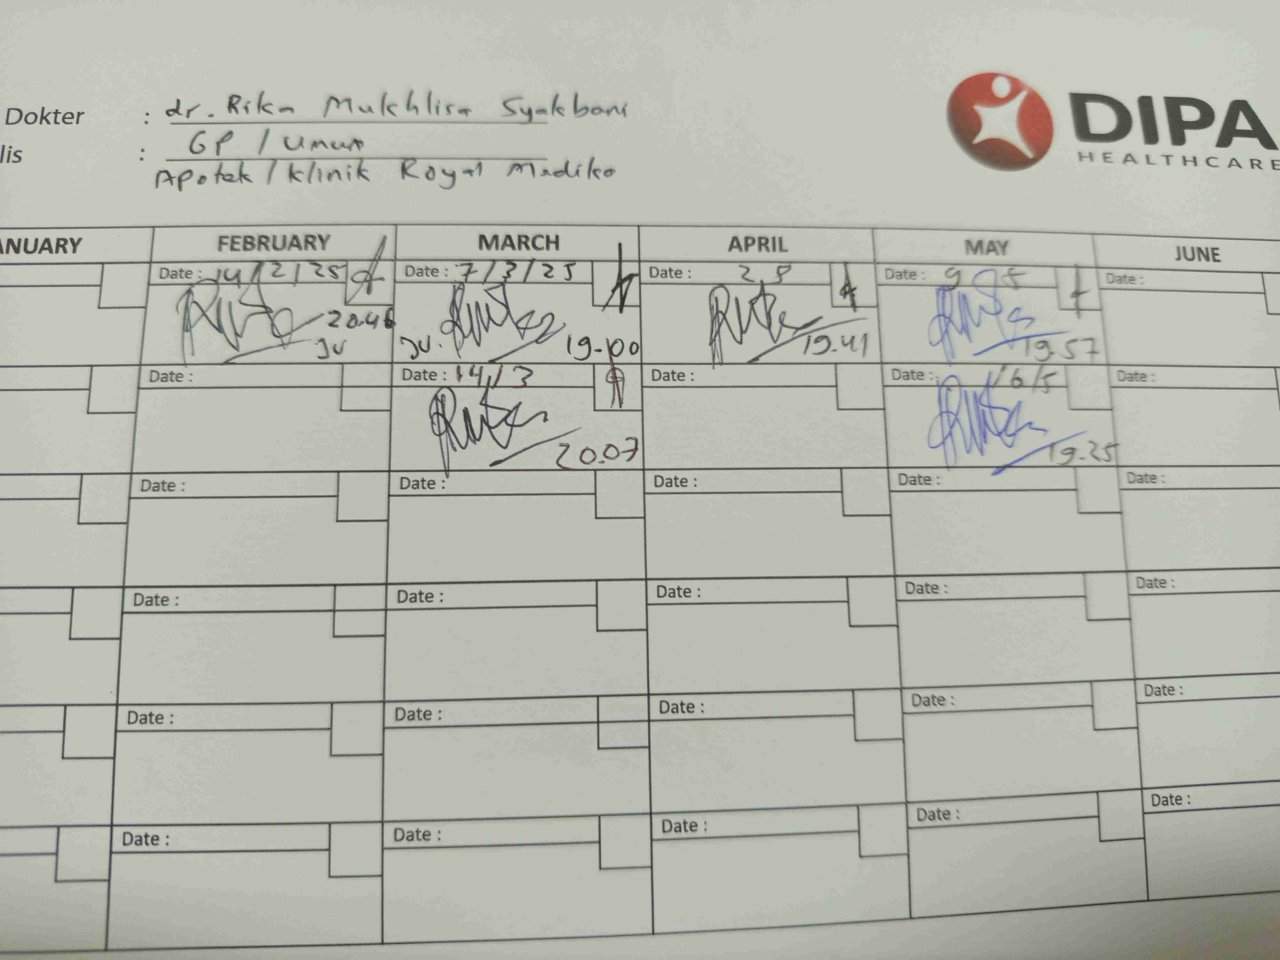 Dokter : dr. Rika Mukhlisa Syakboni
lis : GP / Umum
Apotek / Klinik Royal Medika
DIPA
HEALTHCARE
ANUARY FEBRUARY MARCH APRIL MAY JUNE
Date : 14/2/25 Date : 7/3/25 Date : Date : 9 5 Date :
20.46 19.00 19.41 19.57
Date : Date : 14/3 Date : Date : 16/5 Date :
20.07 19.25
Date : Date : Date : Date : Date :
Date : Date : Date : Date : Date :
Date : Date : Date : Date : Date :
Date : Date : Date : Date : Date :